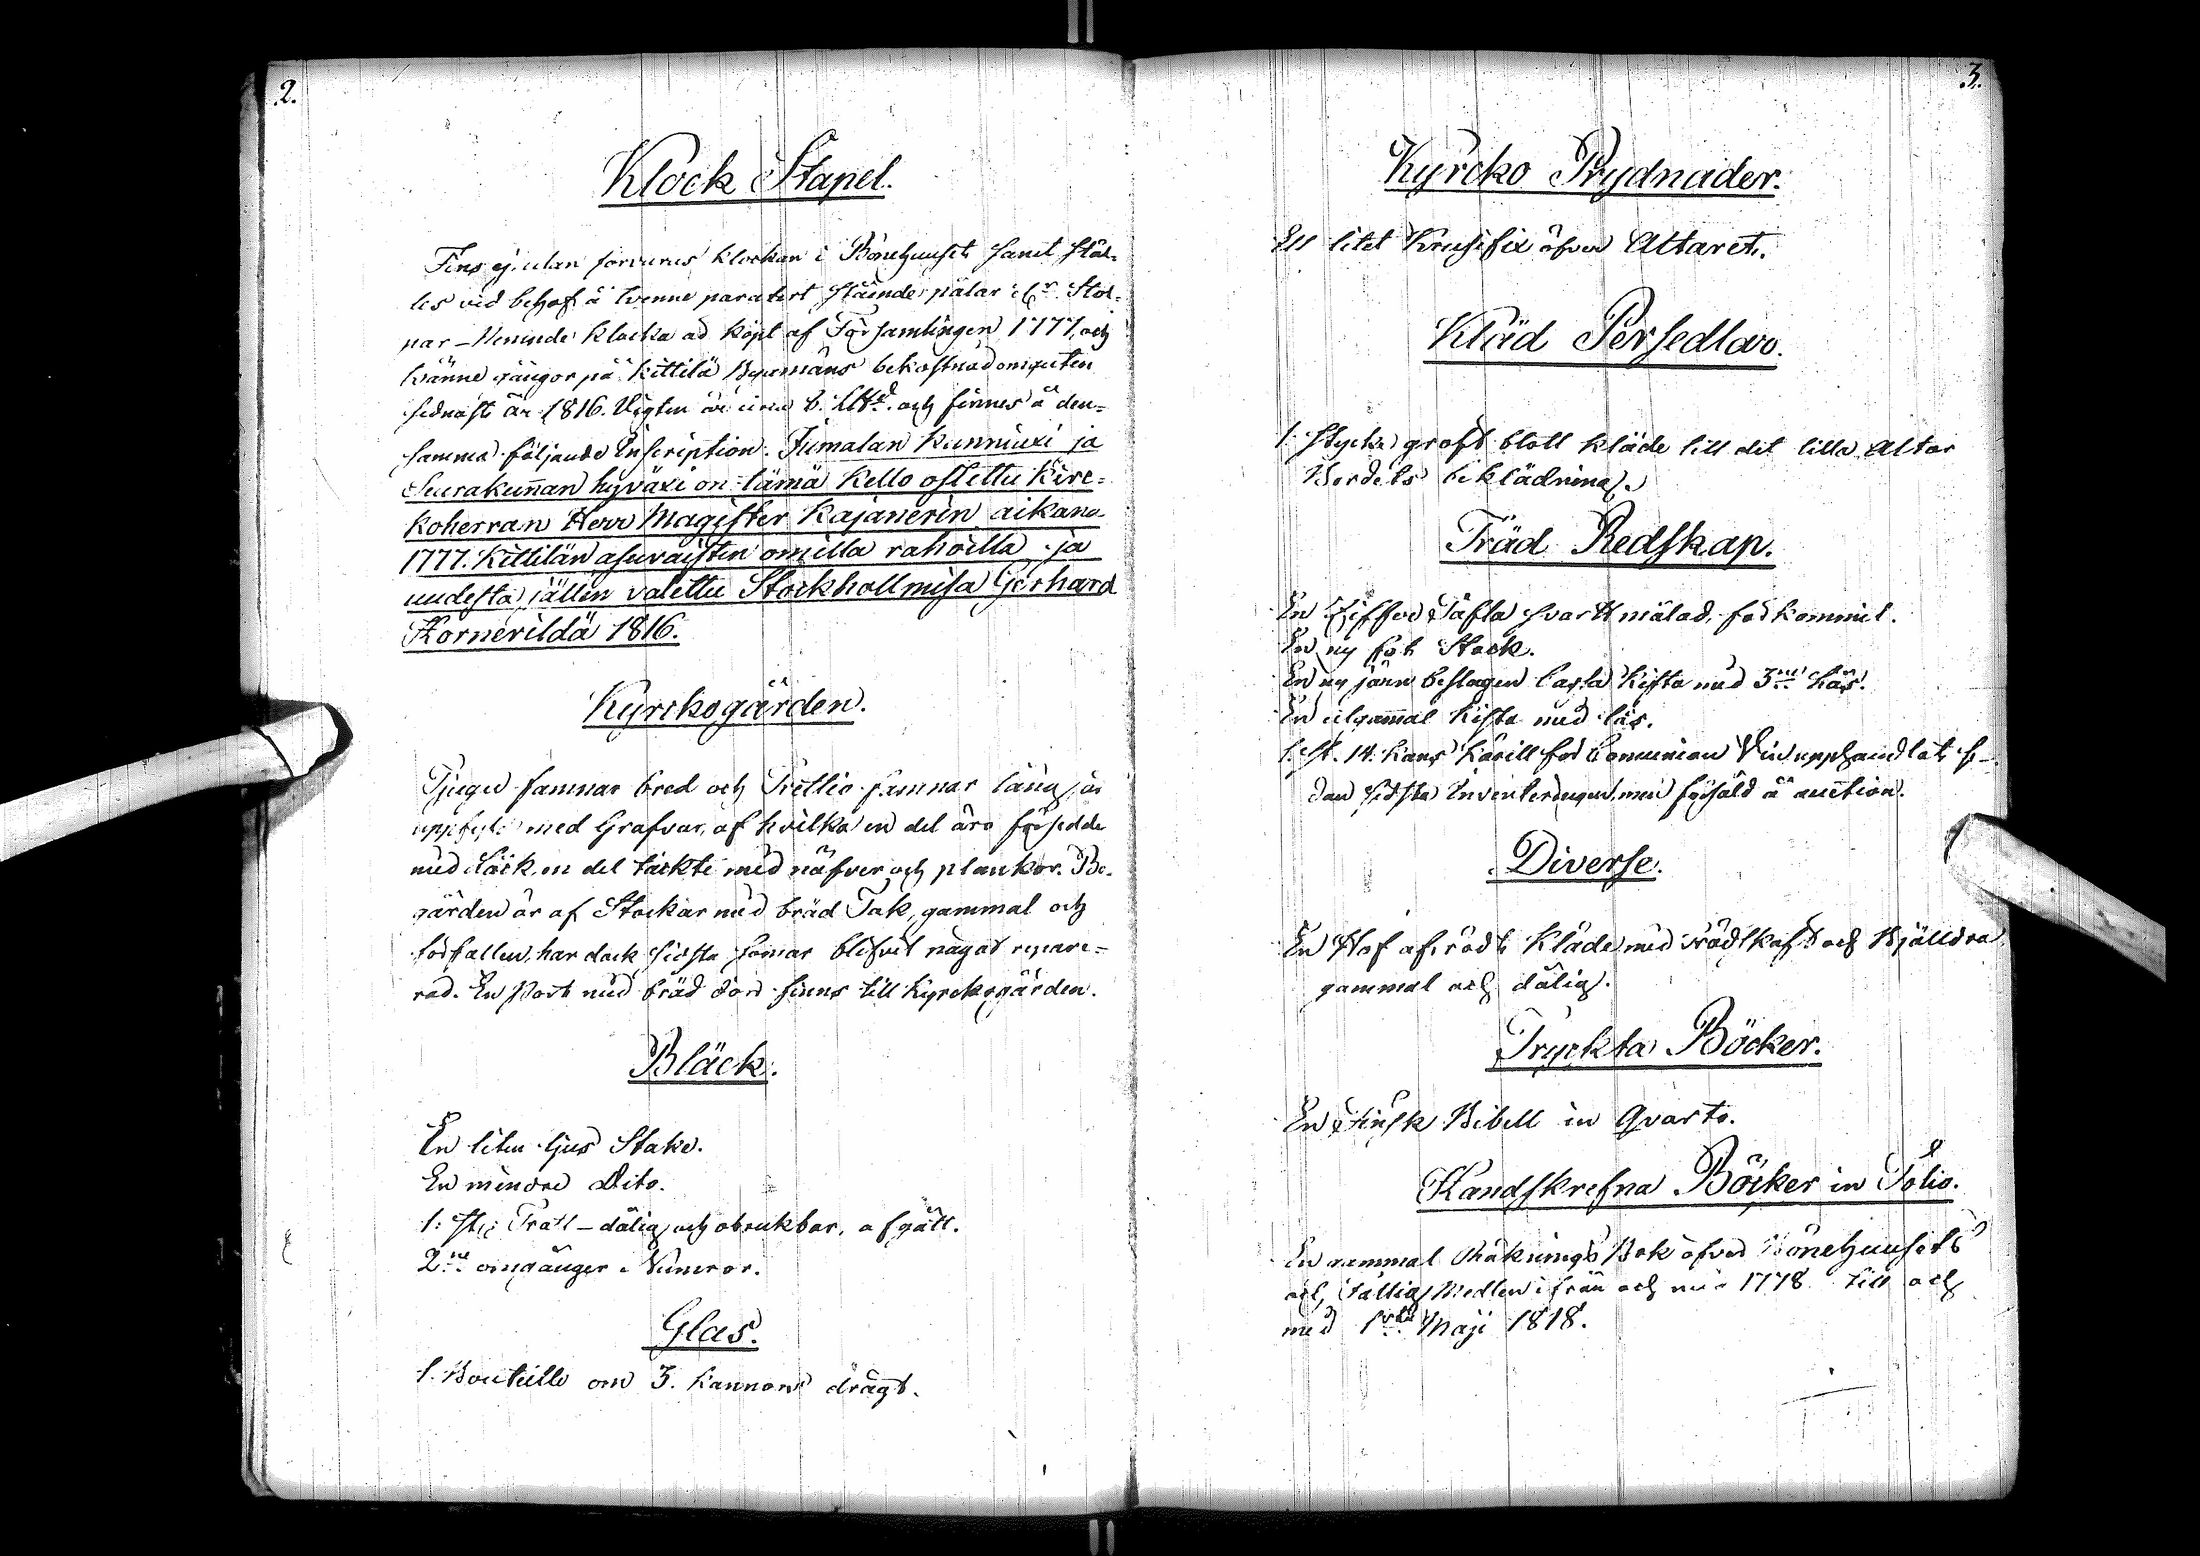 2.
Klock Stapel.
Fins ej. utan förvaras klockan i Bönehuuset samt stäl-
les vid behof å tvenne paralert stående pålar
nar — Keninde klocka är köpt af Församlingen 1777, och
tvänne gångor på Kittilä Byemäns bekostnad omguten
sednast år 1816. Vigten är circa 6. och finnes å den-
samma följande Inscription: Jumalan Kunniaxi ja
Seurakunnan hyväxi on tämä Kello ostettu Kirc-
koherran Herr Magister Kajanerin aikana
1777. Kittilän asuvaisten omilla rahoilla ja
uudesta jällen valettu Stockhollmisa Gerhard
Hornerildä 1816.
Kyrckogården.
Tjugu famnar bred och Trettio famnar lång, är
uppfyld med Grafvar, af hvilka en del äro försedde
med Läck, en del täckte med näfver och plankor. Be-
gården är af Stockar med bräd Tak, gammal och
förfallen, har dock sidsta somar blifvit något repare-
rad. En Port med bräd dörr finns till Kyrckogården.
Bläck.
En liten ljus Stake.
En mindre Dito.
1: st: Tratt — dålig och obrukbar, afgått.
2:ne omgånger Numror.
Glas.
1. Bouteille om 3. Kannors drägt.
3.
Kyrcko Prydnader.
Ett litet Krusifix öfver Altaret.
Kläd Persedlar.
1. Stycke groft blott kläde till det lilla Altar
Bordets beklädning.
Träd Redskap.
En Ziffer Tafla svart målad, förkommit.
En ny fot Stock.
En ny järn beslagen Cassa Kista med 3:ne Lås.
En utgammal Kista med lås.
1. st. 14. Kans Kärill för Comunion Vin upphandlat se-
dan sidsta Inventeringen, men försåld å auction.
Diverse.
En Hof af rödt Kläde med trädskaft och Bjälldra
gammal och dålig.
Tryckta Böcker.
En Finsk Bibell in Qvarto.
Handskrefna Böcker in Folio.
En gammal Räknings Bok öfver Bönehuusets
och Fattig Medlen ifrån och med 1778 till och
med 1:sta Maji 1818.